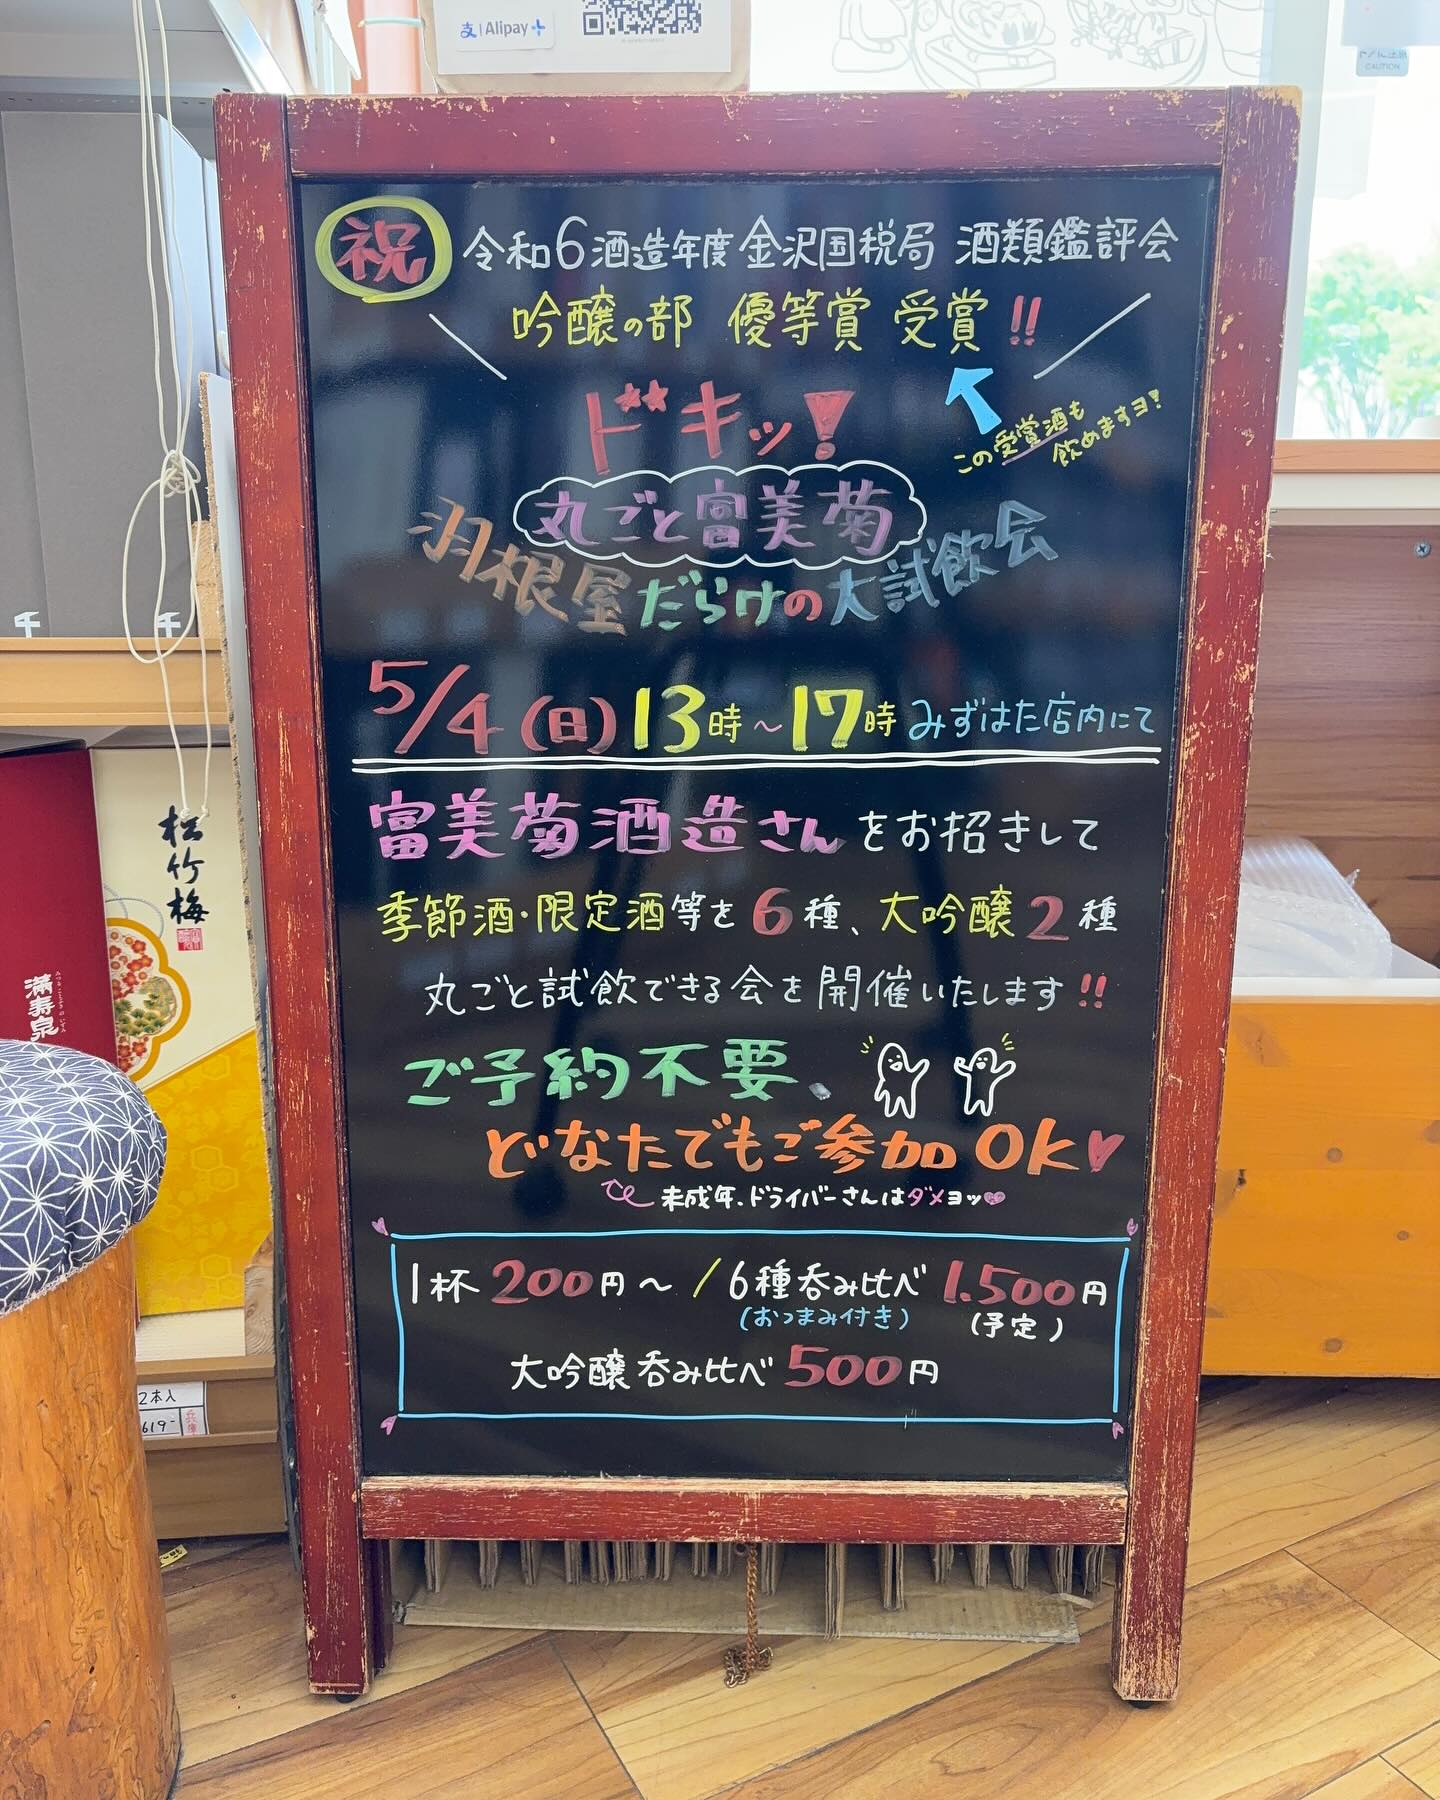 支 | Alipay+
CAUTION
祝 令和6酒造年度 金沢国税局 酒類鑑評会
吟醸の部 優等賞 受賞!!
ドキッ!
この受賞酒も
飲めますヨ!
丸ごと富美菊
羽根屋だらけの大試飲会
5/4(日)13時~17時 みずはた店内にて
富美菊酒造さんをお招きして
季節酒・限定酒等を6種、大吟醸2種
丸ごと試飲できる会を開催いたします!!
ご予約不要、
どなたでもご参加OK♥
未成年、ドライバーさんはダメヨッ♥
1杯200円~/6種呑み比べ1.500円
(おつまみ付き) (予定)
大吟醸呑み比べ500円
松竹梅
満寿泉
2本入
619-